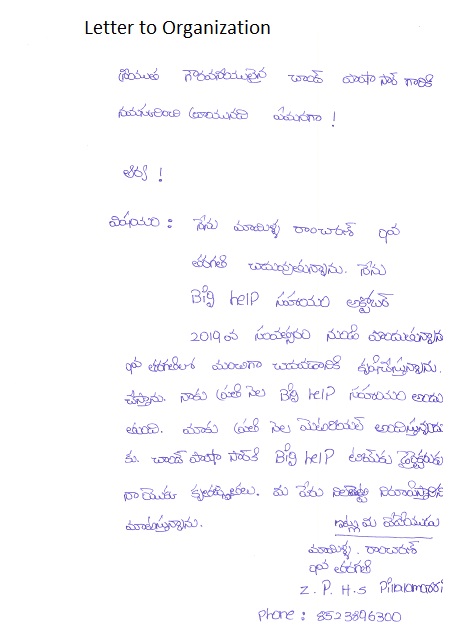 Letter to Organization
శ్రీయుత గౌరవనీయులైన చాంద్ పాషా సార్ గారికి
నమస్కరించి వ్రాయునది ఏమనగా !
ఆర్య !
విషయం : నేను మాయిళ్ళ రాంచరణ్ 9వ
తరగతి చదువుతున్నాను. నేను
Big help సహాయం అక్టోబర్
2019 వ సంవత్సరం నుండి పొందుతున్నాను
9వ తరగతిలో మంచిగా చదవడానికి కృషిచేస్తున్నాను.
చేస్తాను. నాకు ప్రతి నెల Big help సహాయం అందు
తుంది. మాకు ప్రతి నెల మెటీరియల్ అందిస్తున్నందు
కు. చాంద్ పాషా సార్‌కి Big help టీమ్‌కు డైరెక్టరుకు
నా యొక్క కృతజ్ఞతలు. మీ పేరు
మాటిస్తున్నాను. ఇట్లు మీ విధేయుడు
మాయిళ్ళ. రాంచరణ్
9వ తరగతి
Z. P. H. S Pillalamarri
Phone : 8523896300